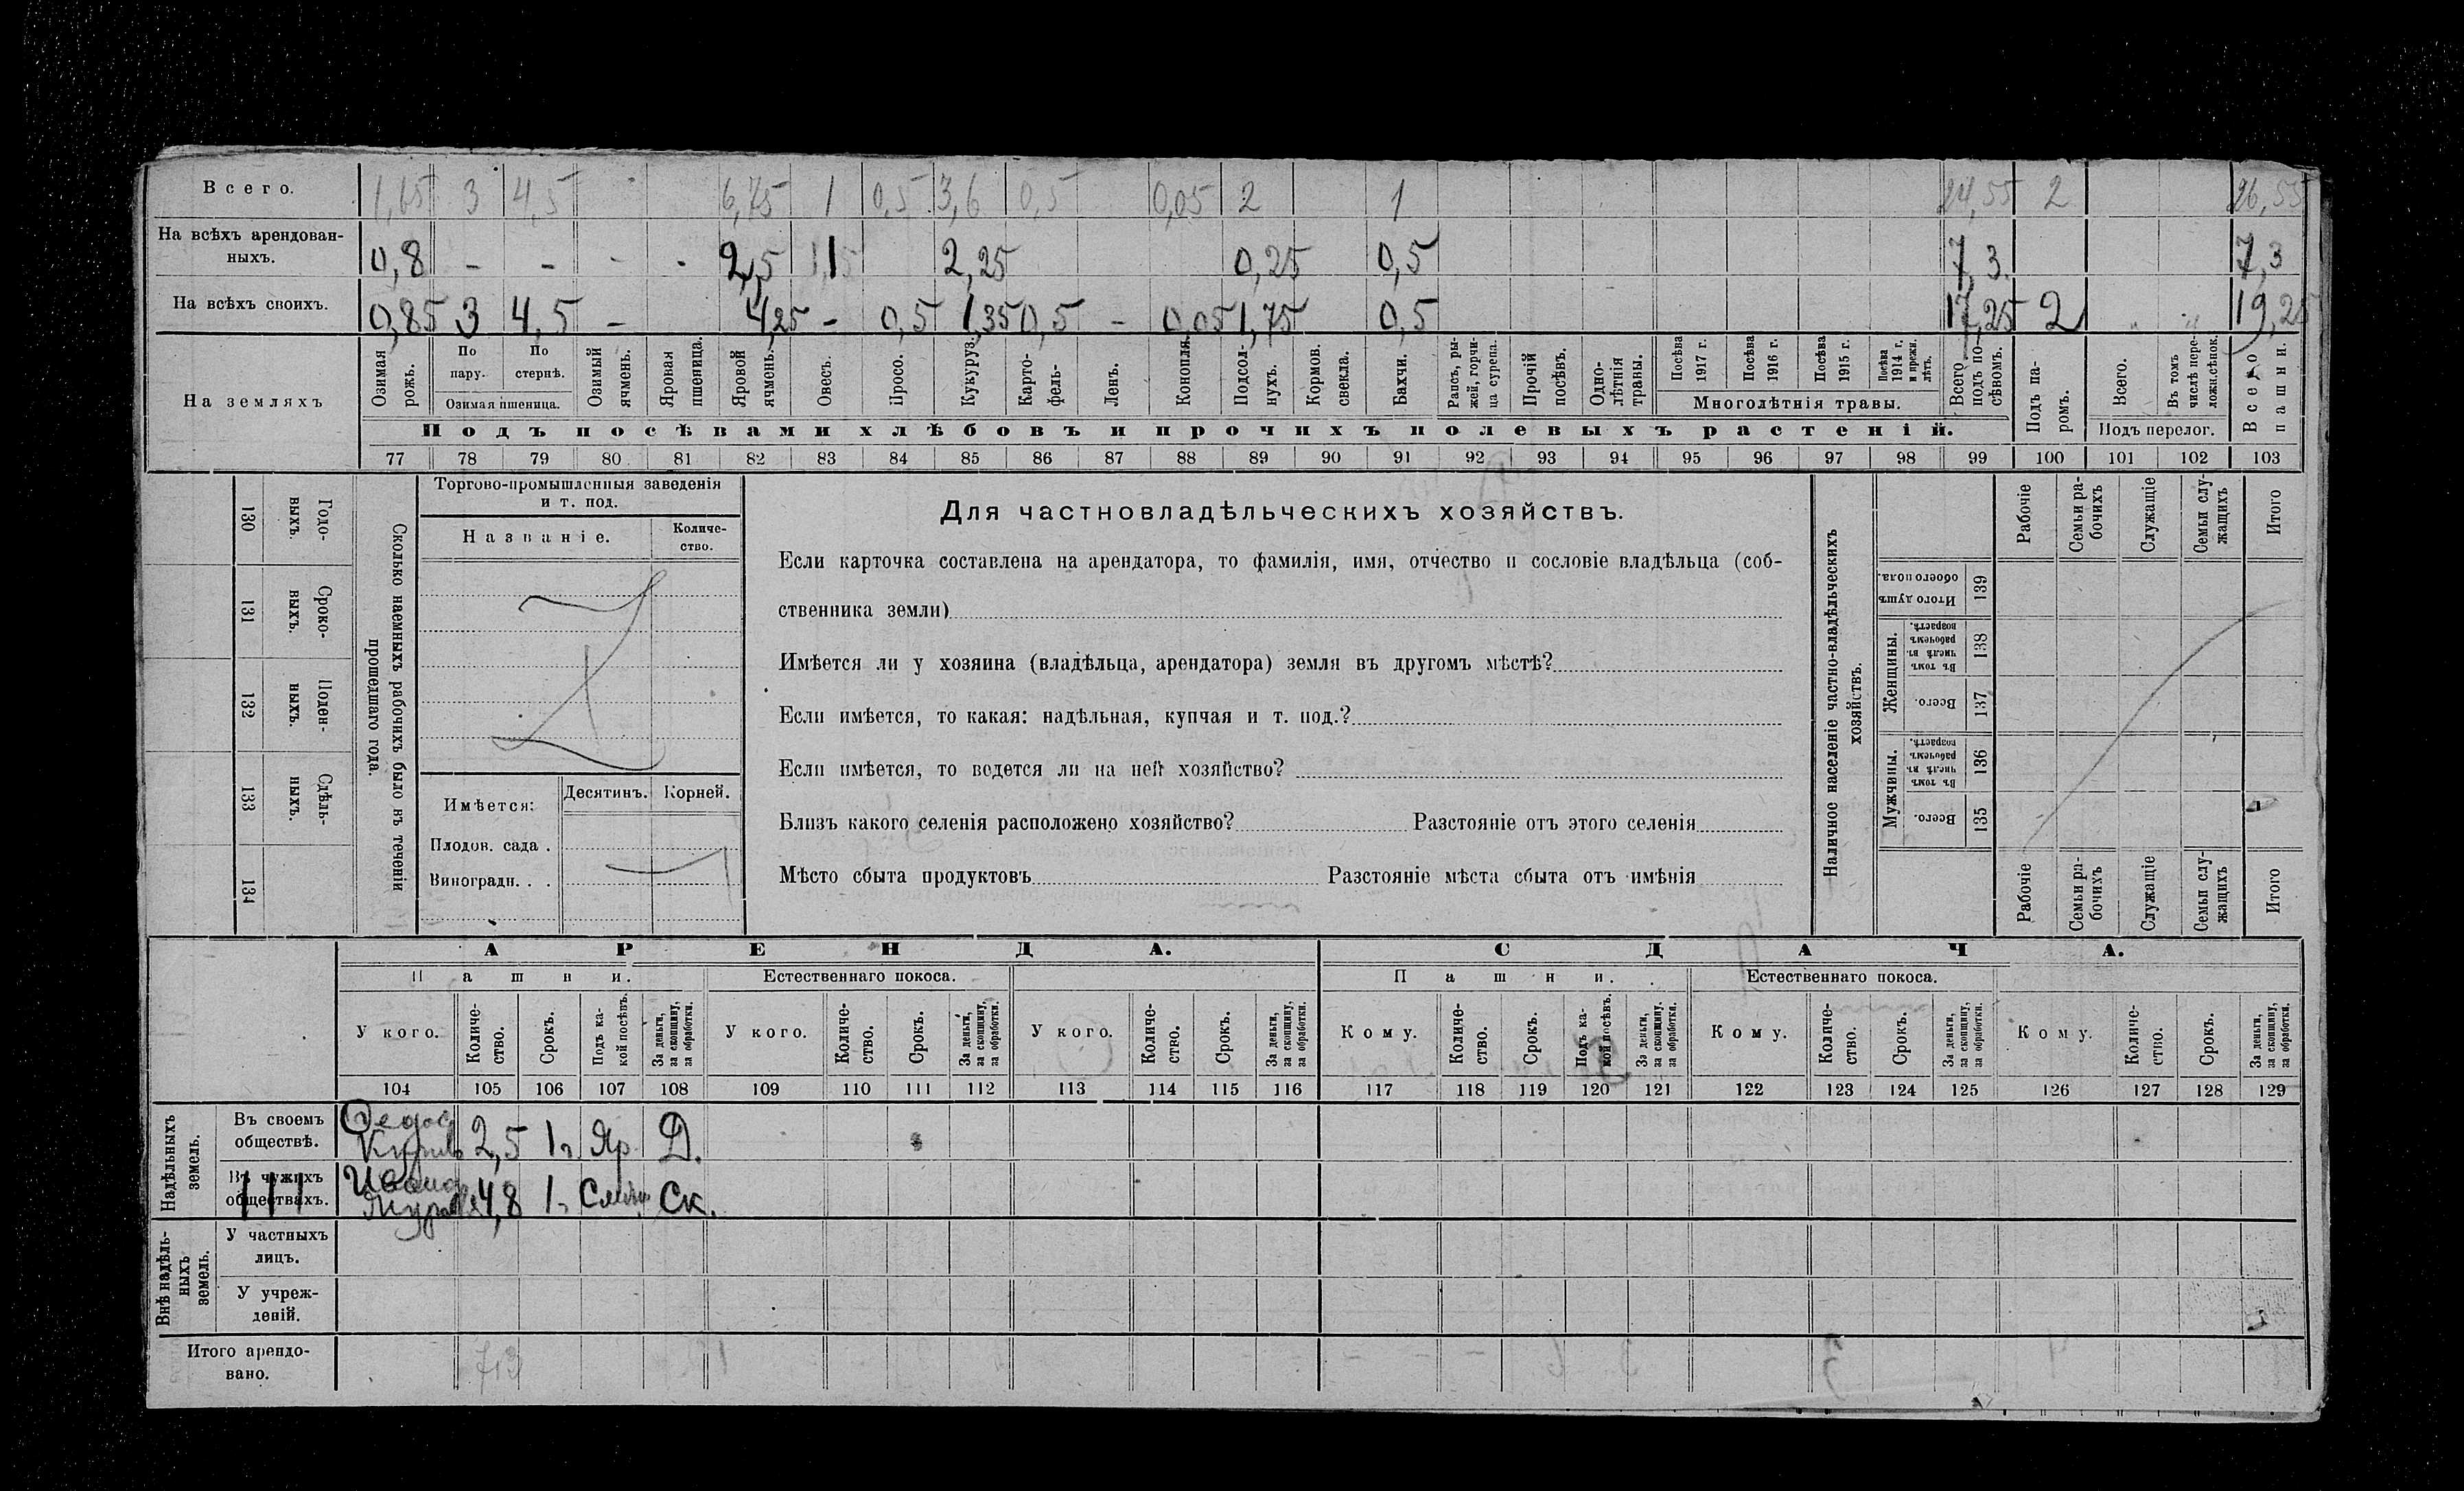 Всего. 1,65 3 4,5 - 6,75 1 0,5 3,6 0,5 0,05 2 1 24,55 2 26,55
На всѣхъ арендован-
ныхъ. 0,8 - - - - 2,5 1 2,25 0,25 0,5 7,3 7,3
На всѣхъ своихъ. 0,85 3 4,5 - 4,25 - 0,5 1,35 0,5 - 0,05 1,75 0,5 17,25 2 19,25
На земляхъ
Озимая рожь.
По пару.
По стернѣ.
Озимая пшеница.
Озимый ячмень.
Яровая пшеница.
Яровой ячмень.
Овесъ.
Просо.
Кукуруз.
Карто-
фель-
Ленъ.
Конопля.
Подсол-
нухъ.
Кормов. свекла.
Бахчи.
Рапсъ, ры-
жей, горчи-
ца сурепа.
Прочій посѣвъ.
Одно-
лѣтнія травы.
Посѣва 1917 г.
Посѣва 1916 г.
Посѣва 1915 г.
Посѣва 1914 г. и прежн. лѣтъ.
Многолѣтнія травы.
Всего подъ по-
сѣвомъ.
Подъ па-
ромъ.
Всего.
Въ томъ числѣ пере-
ложн.сѣнок.
Подъ перелог.
Всего пашни.
Подъ посѣвами хлѣбовъ и прочихъ полевыхъ растеній.
77 78 79 80 81 82 83 84 85 86 87 88 89 90 91 92 93 94 95 96 97 98 99 100 101 102 103
130 Годо-
выхъ.
131 Сроко-
выхъ.
132 Поден-
ныхъ.
133 Сдѣль-
ныхъ.
134
Сколько наемныхъ рабочихъ было въ теченіи
прошедшаго года.
Торгово-промышленныя заведенія
и т. под.
Названіе. Количе-
ство.
Имѣется: Десятинъ. Корней.
Плодов. сада .
Виноградн. . .
Для частновладѣльческихъ хозяйствъ.
Если карточка составлена на арендатора, то фамилія, имя, отчество и сословіе владѣльца (соб-
ственника земли)
Имѣется ли у хозяина (владѣльца, арендатора) земля въ другомъ мѣстѣ?
Если имѣется, то какая: надѣльная, купчая и т. под.?
Если имѣется, то ведется ли на ней хозяйство?
Близъ какого селенія расположено хозяйство? Разстояніе отъ этого селенія
Мѣсто сбыта продуктовъ Разстояніе мѣста сбыта отъ имѣнія
Наличное населеніе частно-владѣльческихъ
хозяйствъ.
Рабочіе
Семьи ра-
бочихъ
Служащіе
Семьи слу-
жащихъ
Итого
Итого душъ обоего пола. 139
Женщины.
Въ томъ числѣ въ рабочемъ возрастѣ. 138
Всего. 137
Мужчины.
Въ томъ числѣ въ рабочемъ возрастѣ. 136
Всего. 135
Рабочіе
Семьи ра-
бочихъ
Служащіе
Семьи слу-
жащихъ
Итого
АРЕНДА. СДАЧА.
Пашни. Естественнаго покоса. Пашни. Естественнаго покоса.
У кого. Количе-
ство. Срокъ. Подъ ка-
кой посѣвъ. За деньги, за скопщину, за обработки. У кого. Количе-
ство. Срокъ. За деньги, за скопщину, за обработки. У кого. Количе-
ство. Срокъ. За деньги, за скопщину, за обработки. Кому. Количе-
ство. Срокъ. Подъ ка-
кой посѣвъ. За деньги, за скопщину, за обработки. Кому. Количе-
ство. Срокъ. За деньги, за скопщину, за обработки. Кому. Количе-
ство. Срокъ. За деньги, за скопщину, за обработки.
104 105 106 107 108 109 110 111 112 113 114 115 116 117 118 119 120 121 122 123 124 125 126 127 128 129
Надѣльныхъ
земель.
Въ своемъ
обществѣ. 2,5 1 г. Яр. Д.
Въ чужихъ
обществахъ. 4,8 1 Ск.
Внѣ надѣль-
ныхъ
земель.
У частныхъ
лицъ.
У учреж-
деній.
Итого арендо-
вано. 7,3